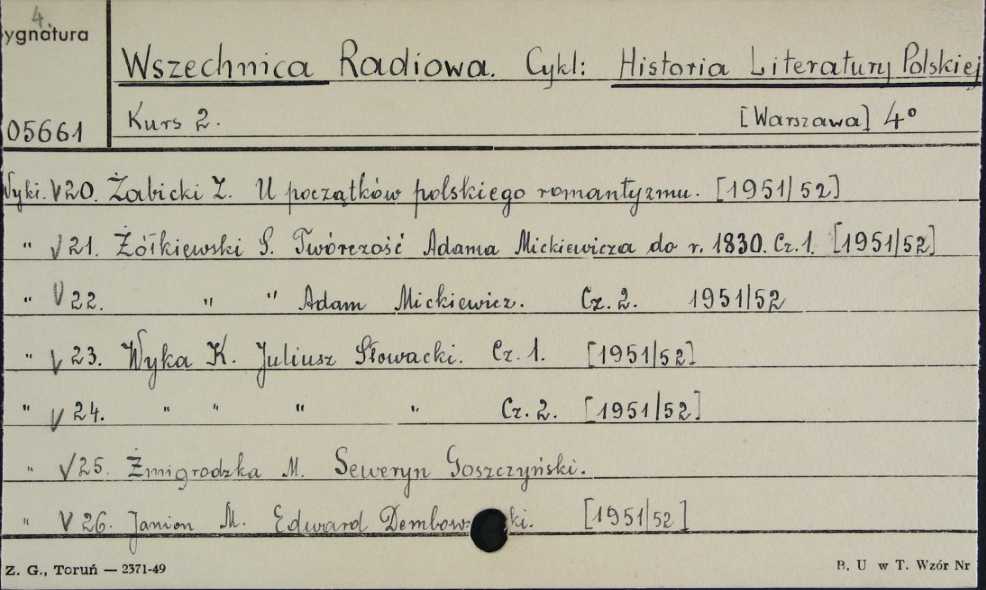 4.
ygnatura
Wszechnica Radiowa. Cykl: Historia Literatury Polskiej
05661
Kurs 2. [Warszawa] 4°
Wyki. V 20. Żabicki Z. U początków polskiego romantyzmu. [1951/52]
" V 21. Żółkiewski S. Twórczość Adama Mickiewicza do r. 1830. Cz. 1. [1951/52]
" V 22. " " Adam Mickiewicz. Cz. 2. 1951/52
" V 23. Wyka K. Juliusz Słowacki. Cz. 1. [1951/52]
" V 24. " " " " Cz. 2. [1951/52]
" V 25. Żmigrodzka M. Seweryn Goszczyński.
" V 26. Janion M. Edward Dembow ki. [1951/52]
Z. G., Toruń — 2371-49 B. U w T. Wzór Nr